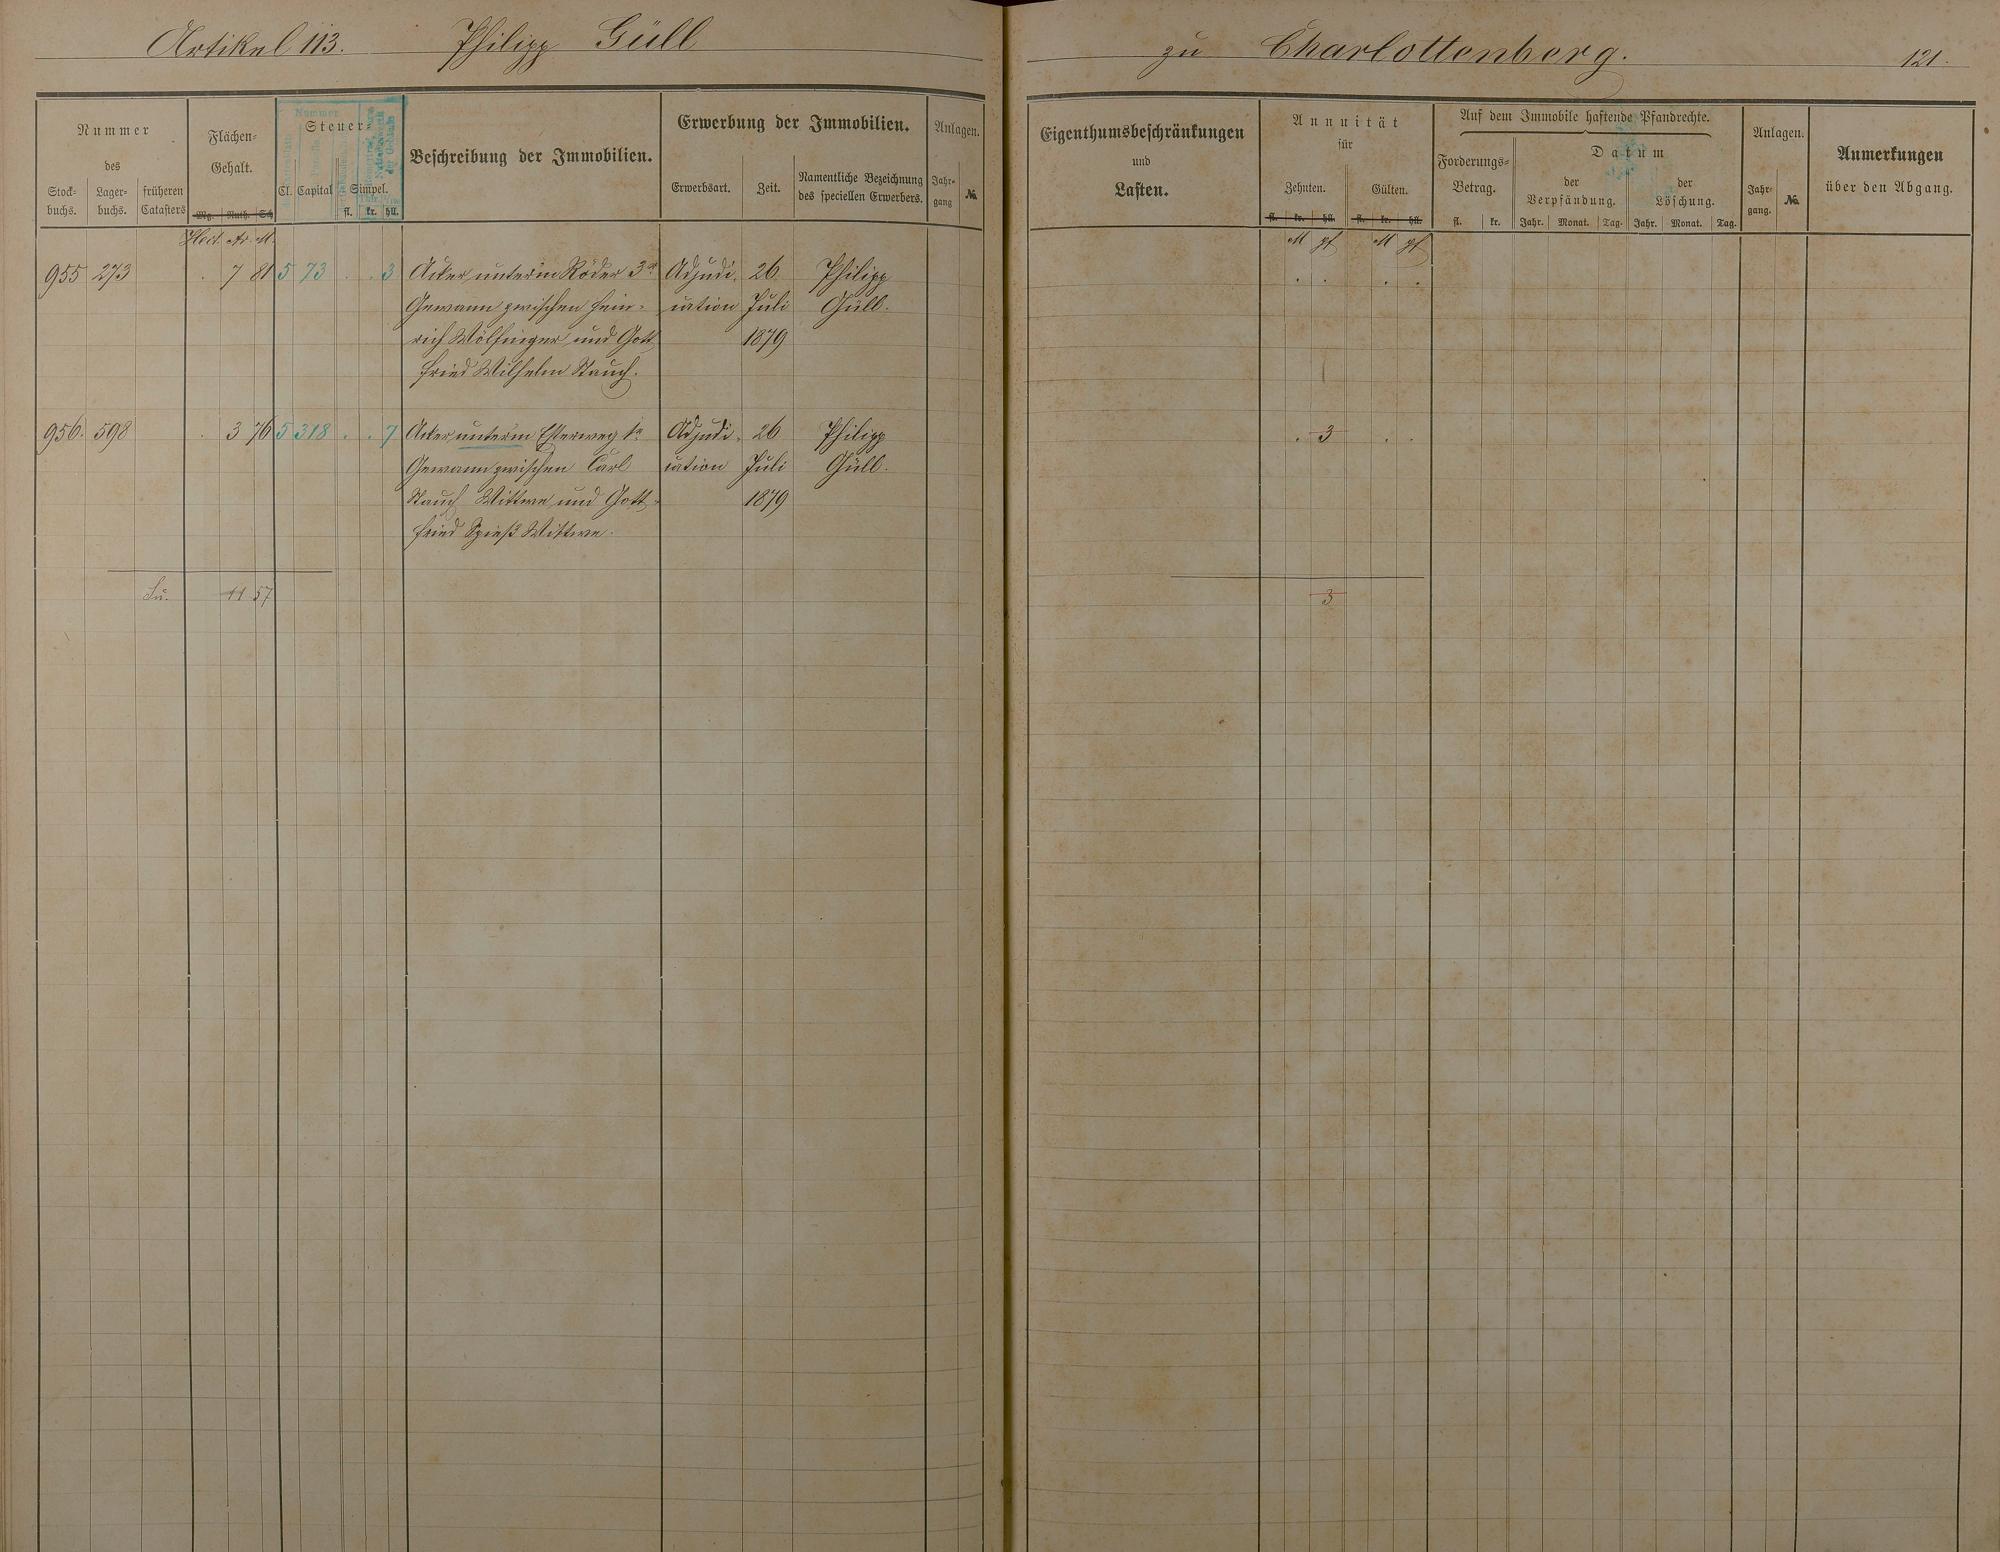 Artikel 113. Philipp Güll zu Charlottenberg. 121.
Nummer
des
Stock-
buchs.
Lager-
buchs.
früheren
Catasters
Flächen-
Gehalt.
Mg. Ruth. Sch
Steuer-
Cl. Capital Simpel.
fl. kr. hll.
Beschreibung der Immobilien.
Erwerbung der Immobilien.
Erwerbsart. Zeit.
Namentliche Bezeichnung
des speciellen Erwerbers.
Anlagen.
Jahr-
gang
№
Eigenthumsbeschränkungen
und
Lasten.
Annuität
für
Zehnten. Gülten.
fl. kr. hll. fl. kr. hll.
Auf dem Immobile haftende Pfandrechte.
Forderungs-
Betrag.
fl. kr.
Datum
der
Verpfändung.
Jahr. Monat. Tag.
der
Löschung.
Jahr. Monat. Tag.
Anlagen.
Jahr-
gang.
№
Anmerkungen
über den Abgang.
Hect. Ar. M. M pf M pf
955 273 . 7 81 5 73 . . 3 Acker unterm Röder 3r Adjudi- 26 Philipp . . . .
Gewann zwischen Hein- cation Juli Güll.
rich Wölfinger und Gott 1879
fried Wilhelm Stauch.
956. 598 . 3 76 5 318 . . 7 Acker unterm Esterweg 1r Adjudi- 26 Philipp . 3 . .
Gewann zwischen Carl cation Juli Güll.
Stauch Wittwe und Gott- 1879
fried Spieß Wittwe.
Su. 11 57 3